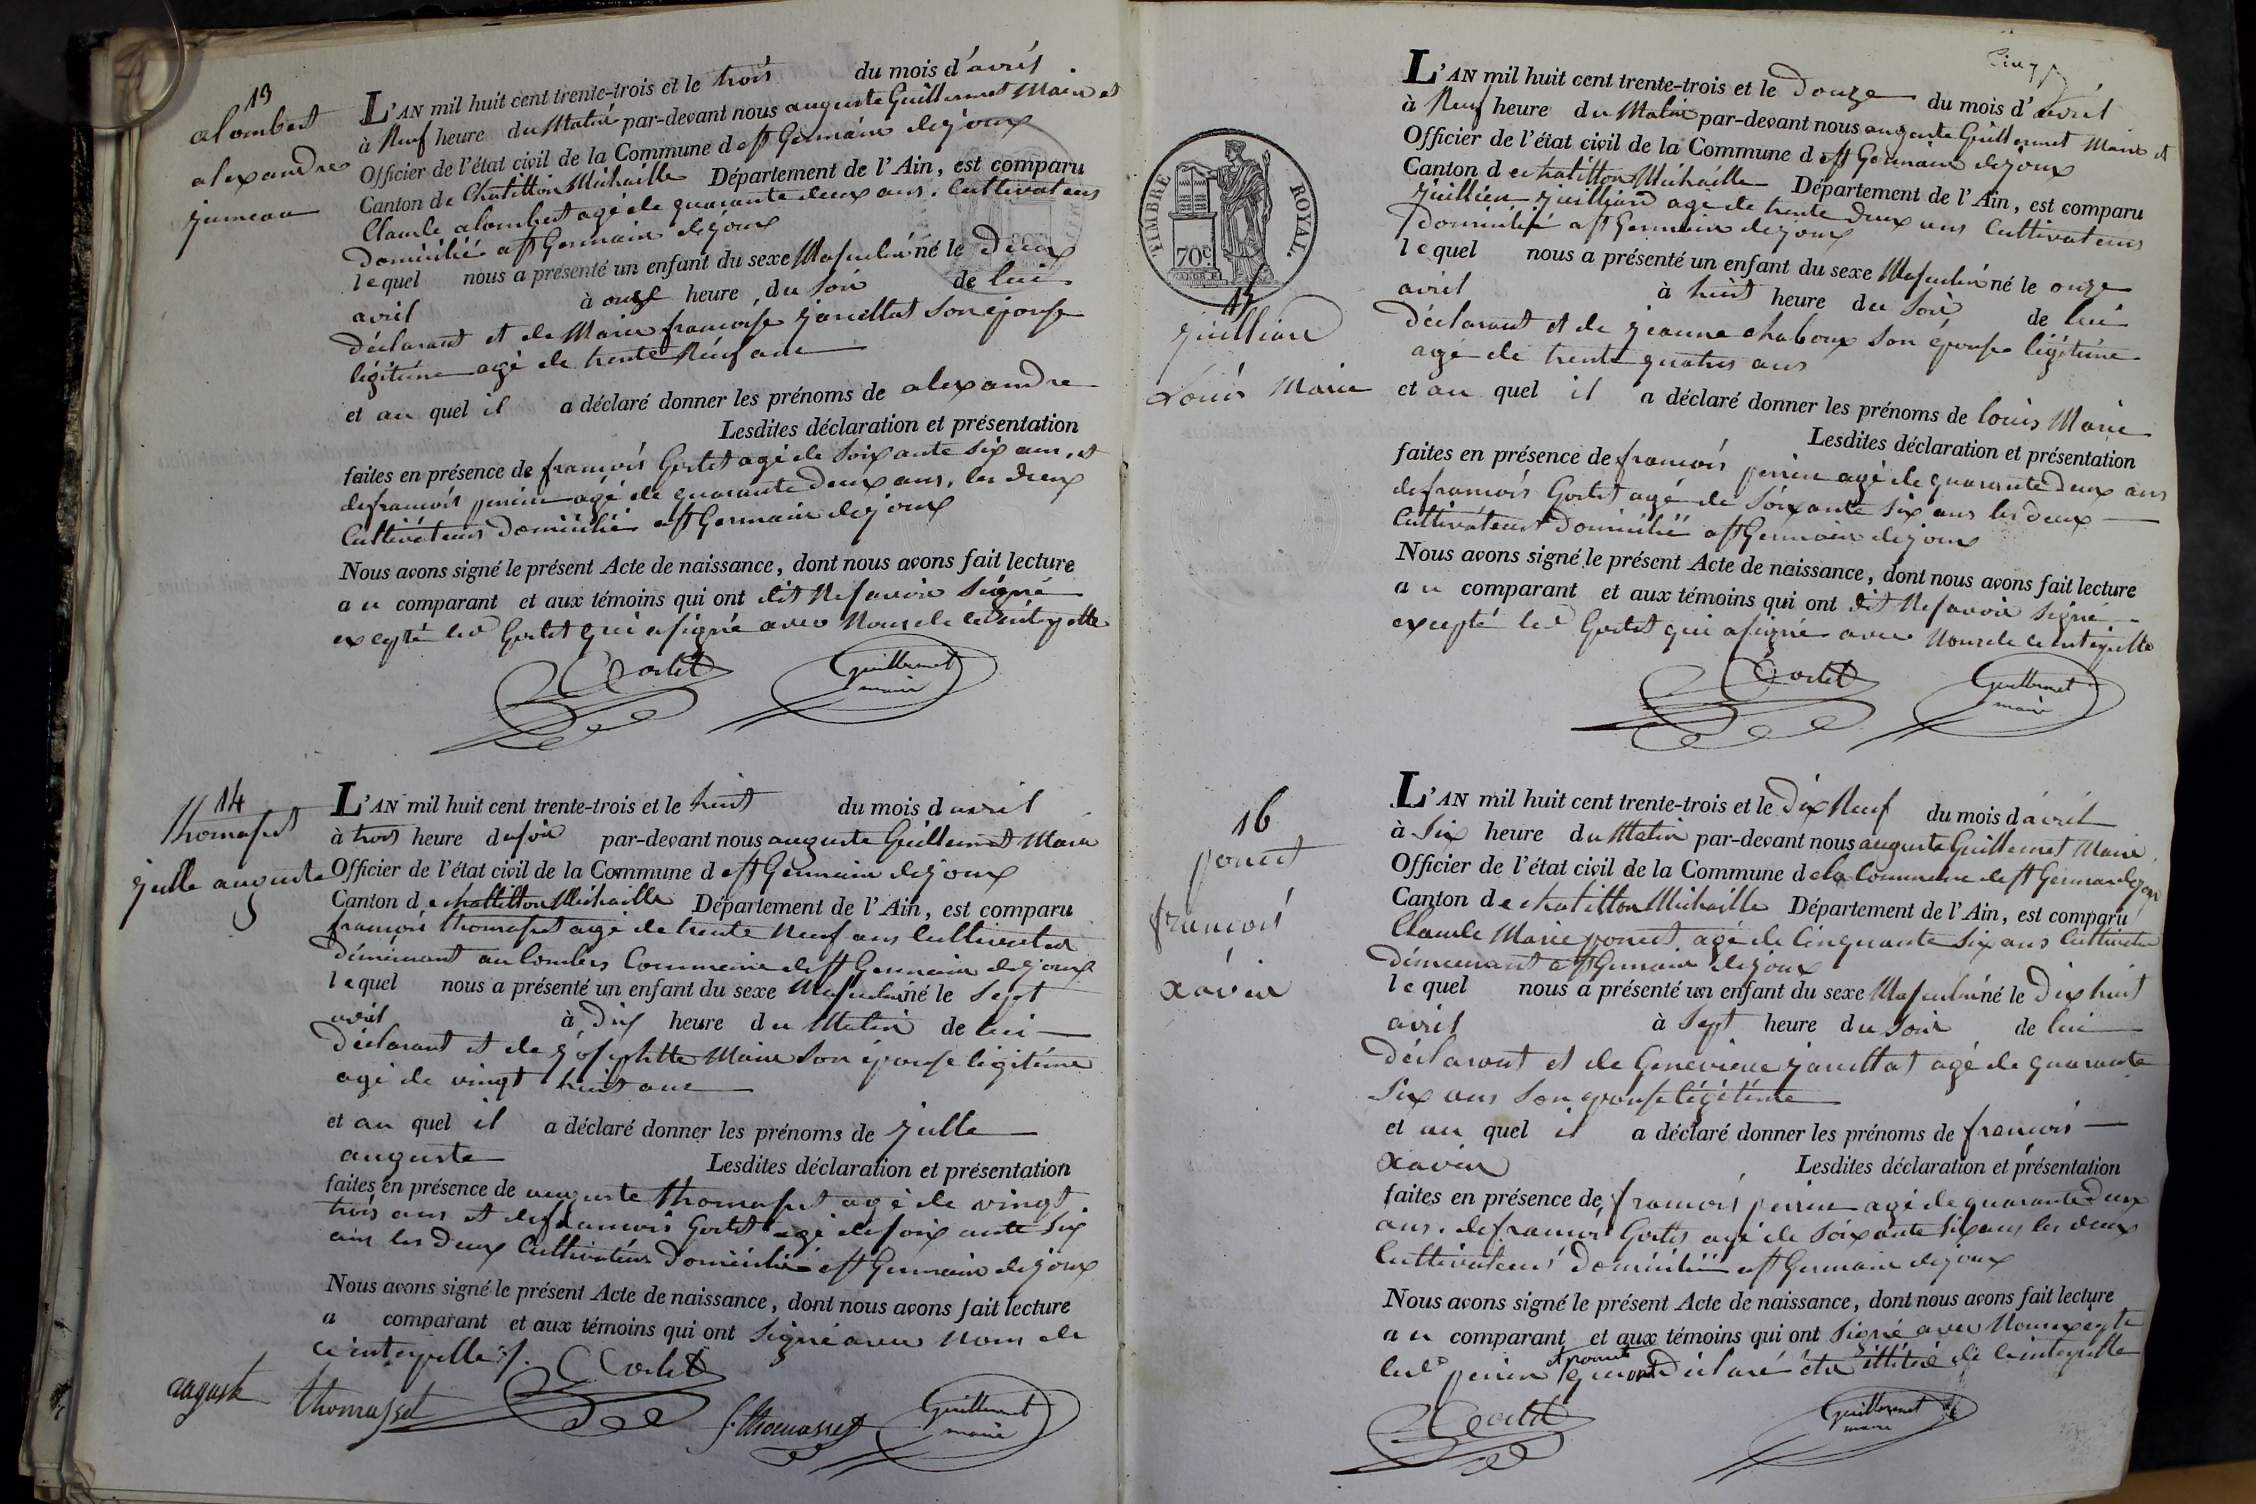 13
alombert
alexandre
jumeau
L'AN mil huit cent trente-trois et le trois du mois d'avril
à Neuf heure du Matin par-devant nous auguste Guillermet Maire et
Officier de l'état civil de la Commune d e st Germain dejoux
Canton de Chatillon Michaille Département de l'Ain, est comparu
Claude alombert agé de quarante deux ans, Cultivateur
Domicilié a st Germain dejoux
lequel nous a présenté un enfant du sexe Masculin né le Deux
avril à onze heure du Soir de lui
Déclarant et de Marie francoise janellat Son épouse
légitime agé de trente Neuf ans
et au quel il a déclaré donner les prénoms de alexandre
Lesdites déclaration et présentation
faites en présence de francois Gortet agé de Soixante Six ans, et
de francois perrin agé de quarante Deux ans, les Deux
Cultivateurs Domicilié a st Germain dejoux
Nous avons signé le présent Acte de naissance, dont nous avons fait lecture
au comparant et aux témoins qui ont dit Ne savoir Signé
excepté led Gortet qui a signé avec Nous de ce interpellé
Gortet Guillermet
maire
14
thomasset
julle auguste
L'AN mil huit cent trente-trois et le huit du mois d avril
à trois heure du soir par-devant nous auguste Guillermet Maire
Officier de l'état civil de la Commune d e st Germain dejoux
Canton de chatillon Michaille Département de l'Ain, est comparu
francois thomasset agé de trente Neuf ans Cultivateur
Démeurant au Commune de st Germain dejoux
lequel nous a présenté un enfant du sexe Masculin né le Sept
avril à Dix heure du Matin de lui
Déclarant et de josephtte Maire Son épouse légitime
agé de vingt huit ans
et au quel il a déclaré donner les prénoms de julle
auguste Lesdites déclaration et présentation
faites en présence de auguste thomasset agé de vingt
trois ans et de francois Gortet agé de soixante Six
ans les Deux Cultivateurs Domicilié a st Germain dejoux
Nous avons signé le présent Acte de naissance, dont nous avons fait lecture
a comparant et aux témoins qui ont Signé avec Nous de
ce interpellé
auguste thomasset Gortet f. thomasset Guillermet
maire
Cinq
TIMBRE ROYAL
70c
15
juillian
Louis Marie
L'AN mil huit cent trente-trois et le Douze du mois d'avril
à Neuf heure du Matin par-devant nous auguste Guillermet Maire et
Officier de l'état civil de la Commune d e st Germain dejoux
Canton de chatillon Michaille Département de l'Ain, est comparu
juillian agé de trente Deux ans Cultivateur
Domicilié a st Germain dejoux
lequel nous a présenté un enfant du sexe Masculin né le onze
avril à huit heure du Soir de lui
Déclarant et de jeanne chaboux Son épouse légitime
agé de trente quatre ans
et au quel il a déclaré donner les prénoms de Louis Marie
Lesdites déclaration et présentation
faites en présence de francois perrin agé de quarante Deux ans
de francois Gortet agé de Soixante Six ans les Deux
Cultivateurs Domicilié a st Germain dejoux
Nous avons signé le présent Acte de naissance, dont nous avons fait lecture
au comparant et aux témoins qui ont dit Ne savoir Signé
excepté led Gortet qui a signé avec Nous de ce interpellé
Gortet Guillermet
maire
16
poncet
francois
xavier
L'AN mil huit cent trente-trois et le Dix Neuf du mois d'avril
à Six heure du Matin par-devant nous auguste Guillermet Maire
Officier de l'état civil de la Commune de la Commune de st Germain dejoux
Canton de chatillon Michaille Département de l'Ain, est comparu
Claude Marie poncet, agé de Cinquante Six ans Cultivateur
Démeurant a st Germain dejoux
lequel nous a présenté un enfant du sexe Masculin né le Dix huit
avril à Sept heure du Soir de lui
Déclarant et de Genevieve janellat agé de quarante
Six ans Son épouse légitime
et au quel il a déclaré donner les prénoms de francois
xavier Lesdites déclaration et présentation
faites en présence de francois perrin agé de quarante Deux
ans, de francois Gortet agé de Soixante Six ans les Deux
Cultivateurs Domicilié a st Germain dejoux
Nous avons signé le présent Acte de naissance, dont nous avons fait lecture
au comparant et aux témoins qui ont Signé avec Nous excepté
led perrin et poncet qui ont Déclaré être illitéré de ce interpellé
Gortet Guillermet
maire